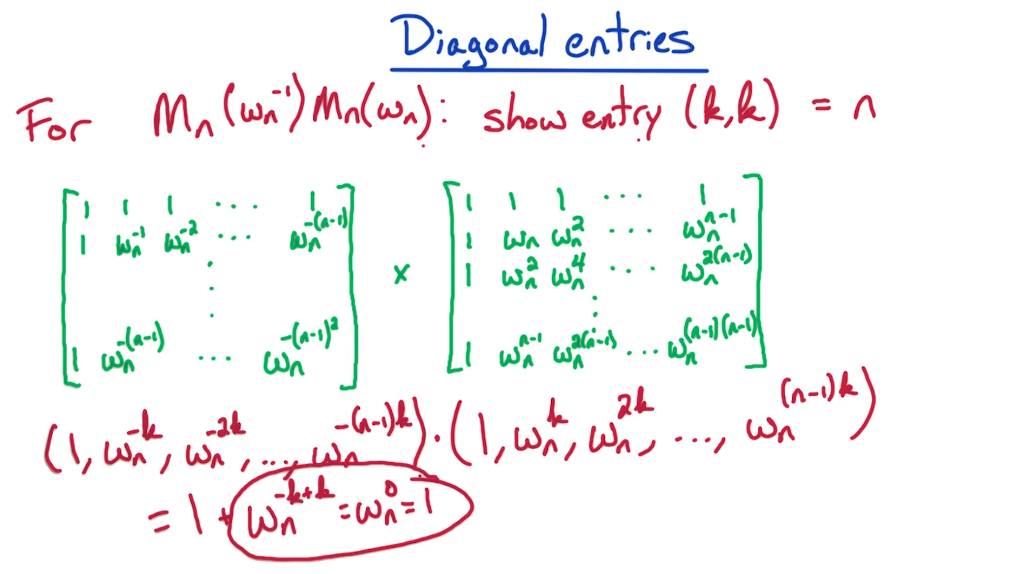 Diagonal entries
For Mₙ(ωₙ⁻¹)Mₙ(ωₙ): show entry (k,k) = n
[1 1 1 ... 1
1 ωₙ⁻¹ ωₙ⁻² ... ωₙ^-(n-1)
⋮
1 ωₙ^-(n-1) ... ωₙ^-(n-1)²]
x
[1 1 1 ... 1
1 ωₙ ωₙ² ... ωₙ^n-1
1 ωₙ² ωₙ⁴ ... ωₙ^2(n-1)
⋮
1 ωₙ^n-1 ωₙ^2(n-1) ... ωₙ^(n-1)(n-1)]
(1, ωₙ^-k, ωₙ^-2k, ..., ωₙ^-(n-1)k) · (1, ωₙ^k, ωₙ^2k, ..., ωₙ^(n-1)k)
= 1 + ωₙ^-k+k = ωₙ⁰ = 1